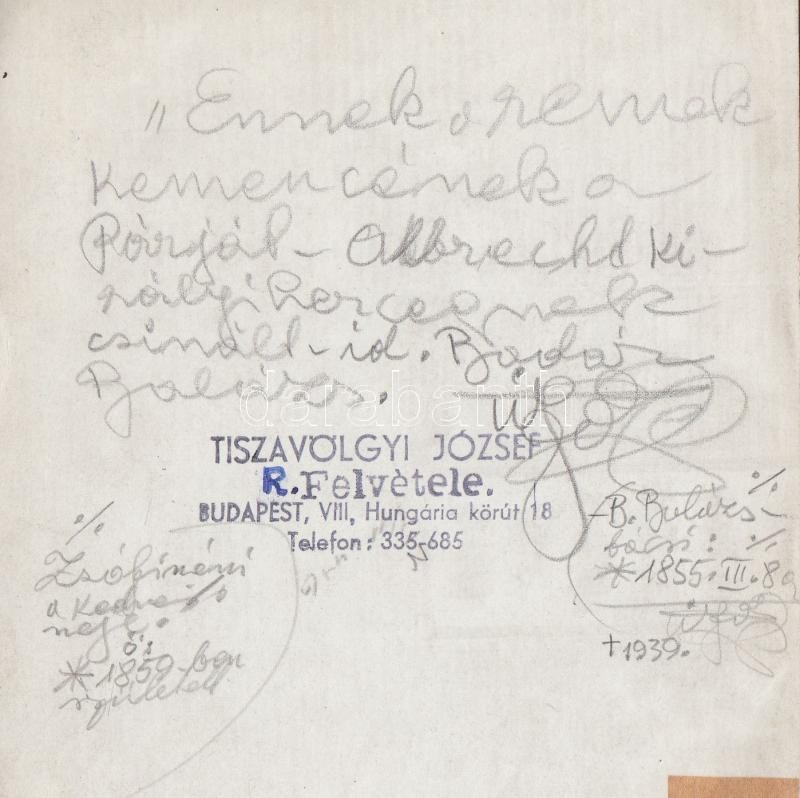 „Ennek a remek
kemencének a
Párját - Albrecht ki-
rályi hercegnek
csinált - id. Badár
Balázs.
TISZAVÖLGYI JÓZSEF
R. Felvétele.
BUDAPEST, VIII, Hungária körút 18
Telefon: 335-685
·/·
Zsófi néni
a kedves
neje.
ő:
* 1859-ben
született
- B. Balázs -
bácsi: ·/·
* 1855. III. 8
†1939.
darabanth